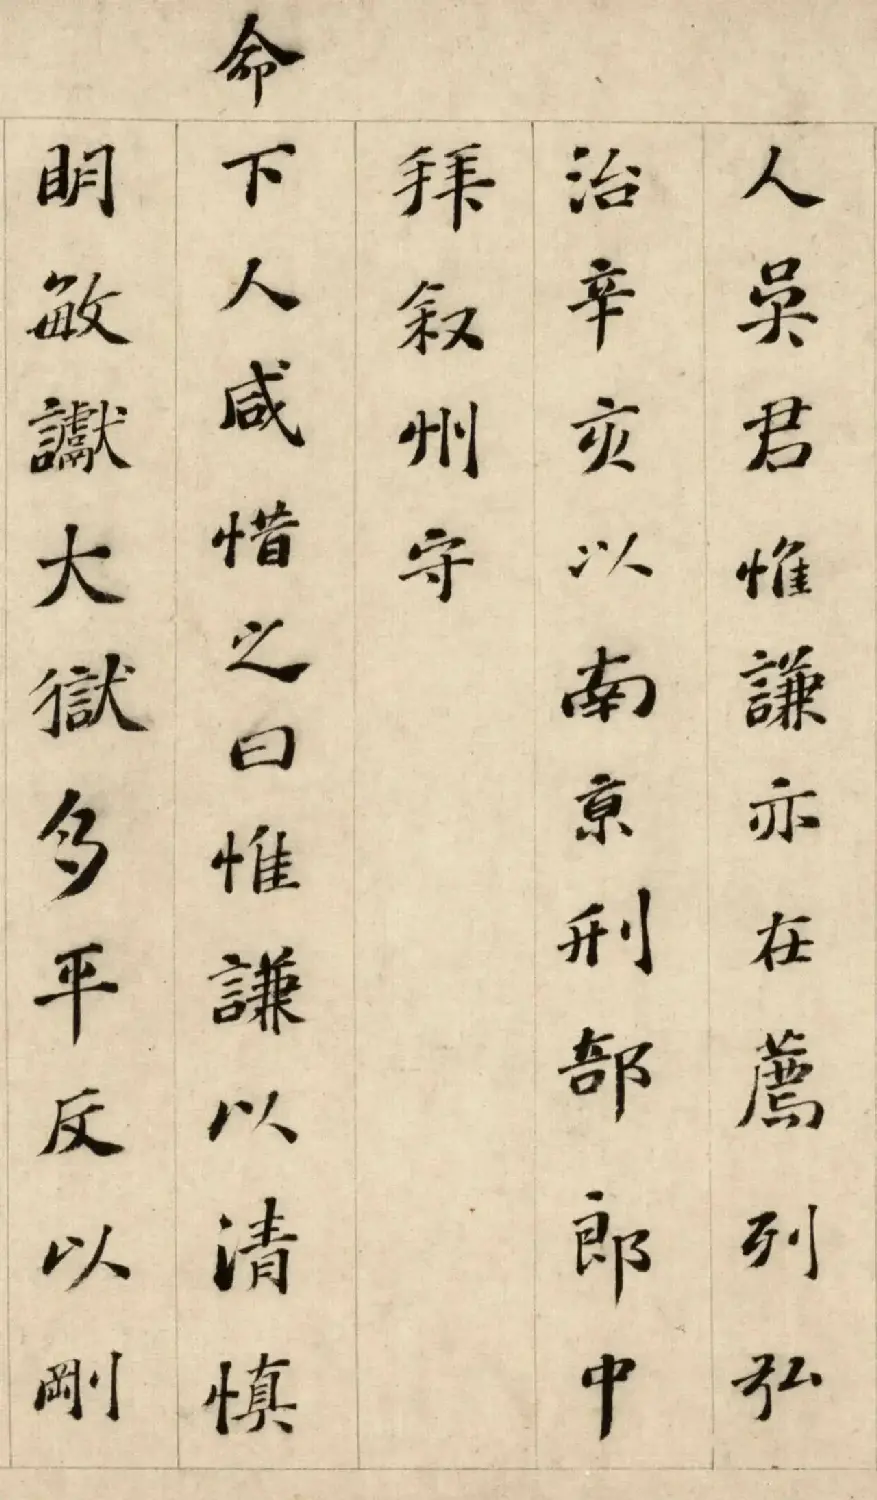 人吳君惟謙亦在薦列弘
治辛亥以南京刑部郎中
拜叙州守
命下人咸惜之曰惟謙以清慎
明敏讞大獄多平反以剛